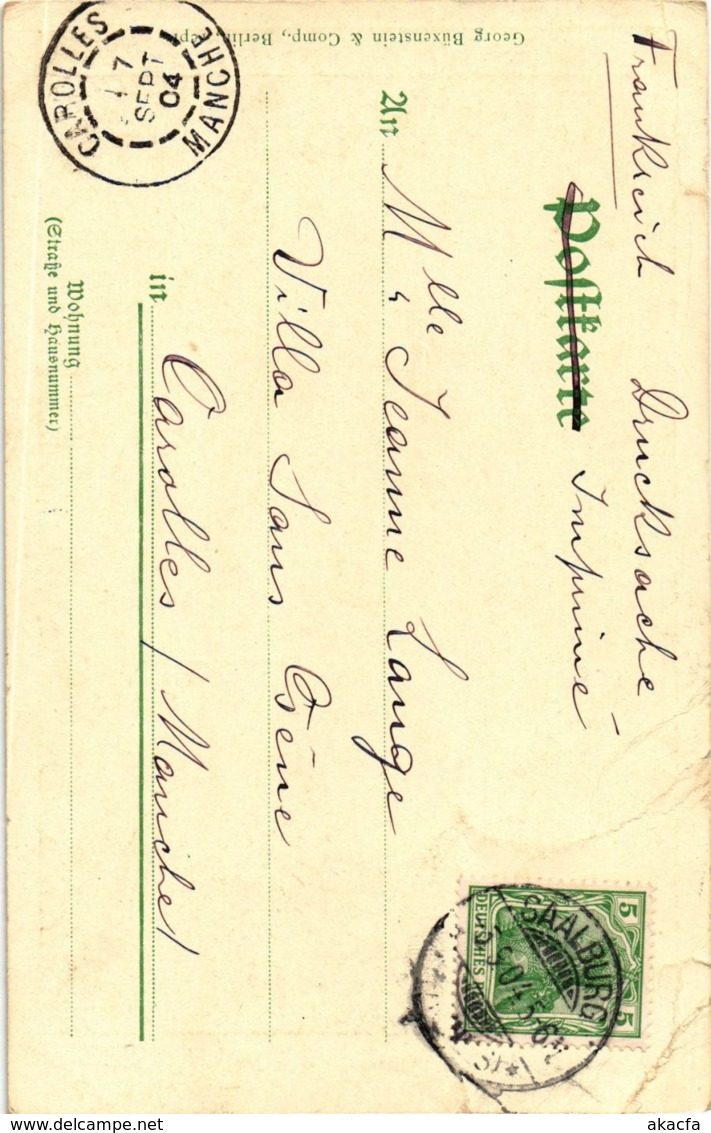 Frankreich Drucksache
Postkarte Imprimé
An Mlle Jeanne Lange
Villa Sans Gêne
in Carolles (Manche)
Wohnung
(Straße und Hausnummer)
Georg Büxenstein & Comp., Berlin
CAROLLES
MANCHE
7
SEPT
04
SAALBURG
5 5
DEUTSCHES
delcampe.net
akacfa akacfa